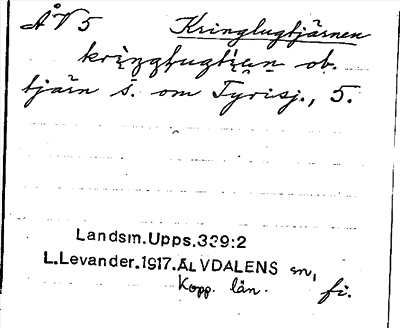 ÅV 5 Kringlugtjärnen
kringlugtjęn ob.
tjärn s. om Tyrisj., 5.
Landsm.Upps.339:2
L.Levander.1917.ÄLVDALENS sn,
Kopp. län. fi.